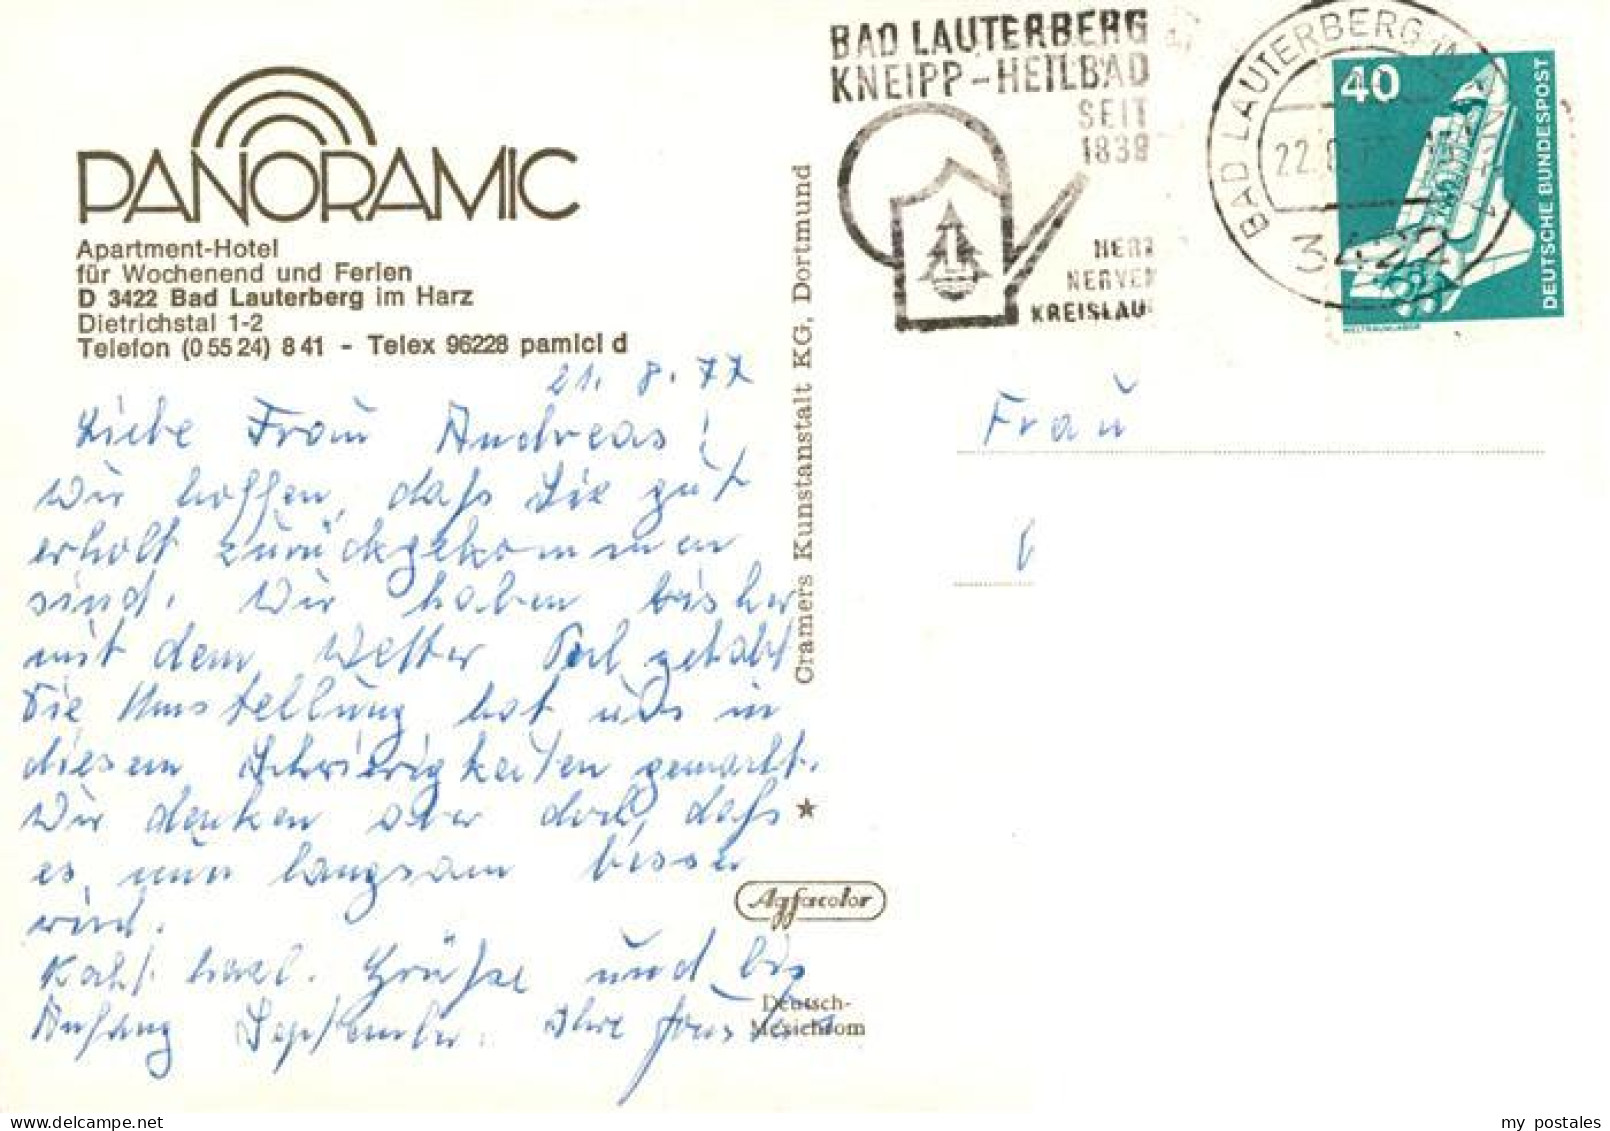 PANORAMIC
Apartment-Hotel
für Wochenend und Ferien
D 3422 Bad Lauterberg im Harz
Dietrichstal 1-2
Telefon (0 55 24) 8 41 - Telex 96228 pamicl d
21. 8. 77
Liebe Frau Andreas!
Wir hoffen, daß Sie gut
erholt zurückgekommen
sind. Wir haben bisher
mit dem Wetter Pech gehabt
Die Umstellung hat uns in
diesem Schwierigkeiten gemacht.
Wir denken aber doch, daß
es nun langsam besser
wird.
Grüße und bis
Anfang September. Ihre
Cramers Kunstanstalt KG, Dortmund
Agfacolor
Deutsch-
Mexichrom
BAD LAUTERBERG
KNEIPP-HEILBAD
SEIT
1839
HERZ
NERVEN
KREISLAU
BAD LAUTERBERG
22.8.
3422
40
DEUTSCHE BUNDESPOST
WELTRAUMLABOR
Frau
my postales